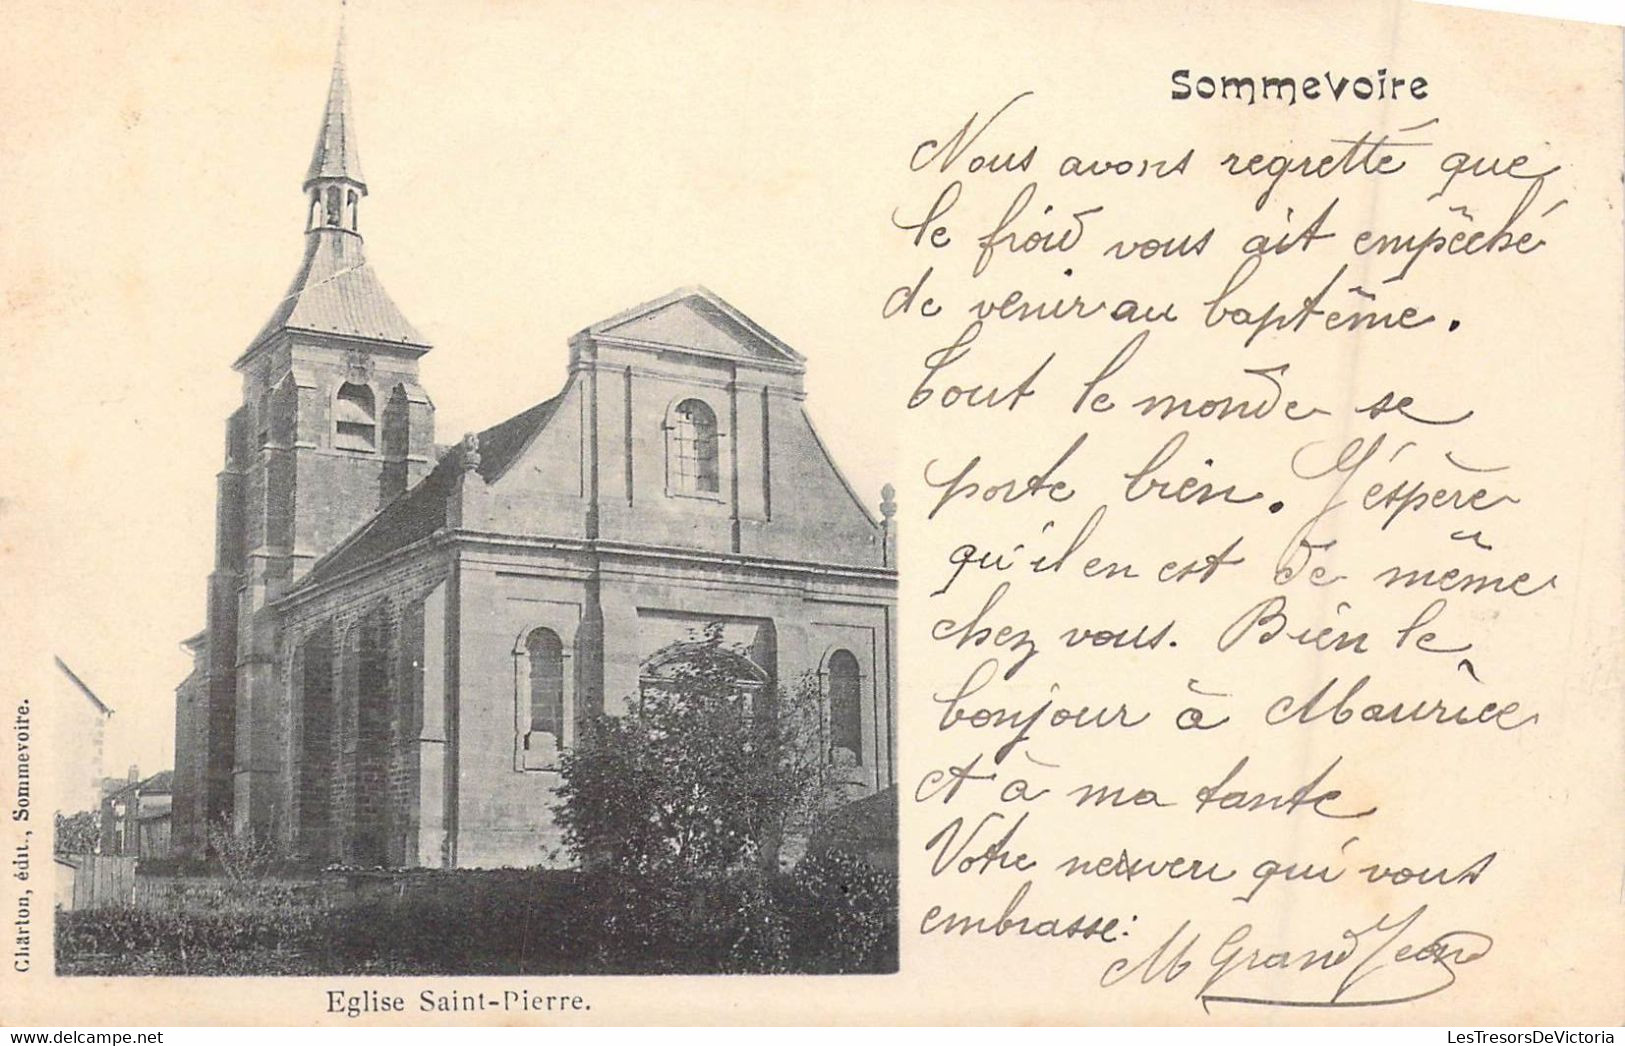 Sommevoire
Nous avons regretté que
le froid vous ait empêché
de venir au baptême.
Tout le monde se
porte bien. J'éspère
qu'il en est de même
chez vous. Bien le
bonjour à Maurice
et à ma tante
Votre neuveu qui vous
embrasse:
M GrandJean
Charton, édit., Sommevoire.
Eglise Saint-Pierre.
LesTresorsDeVictoria